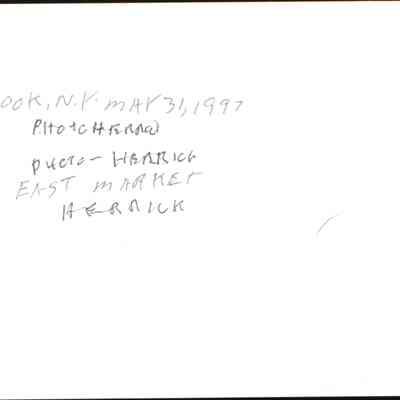 OOK, N.Y. MAY 31, 1997
PHOTO-HERRICK
EAST MARKET
HERRICK